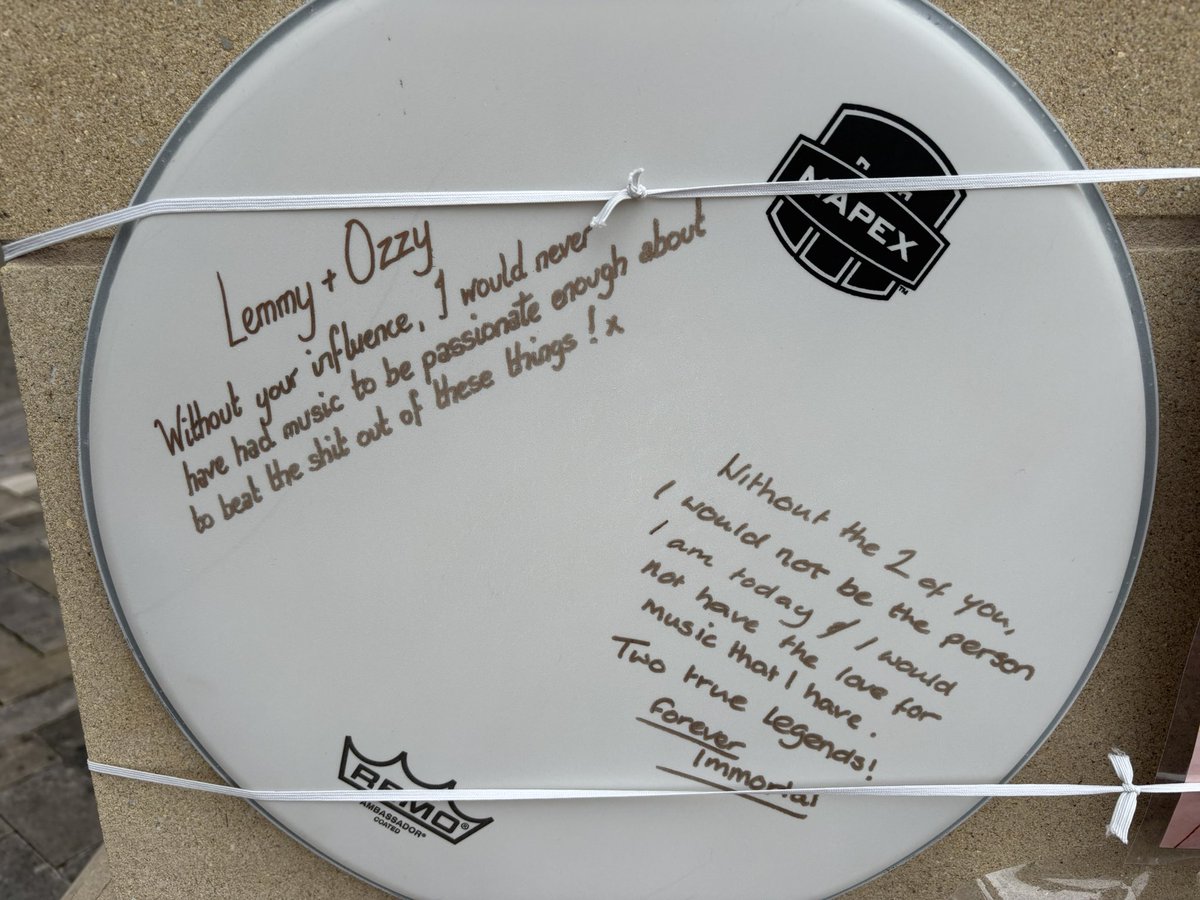 MAPEX
™
Lemmy + Ozzy
Without your influence, I would never
have had music to be passionate enough about
to beat the shit out of these things ! x
Without the 2 of you,
I would not be the person
I am today & I would
not have the love for
music that I have.
Two true legends!
forever
Immortal
REMO®
AMBASSADOR®
COATED